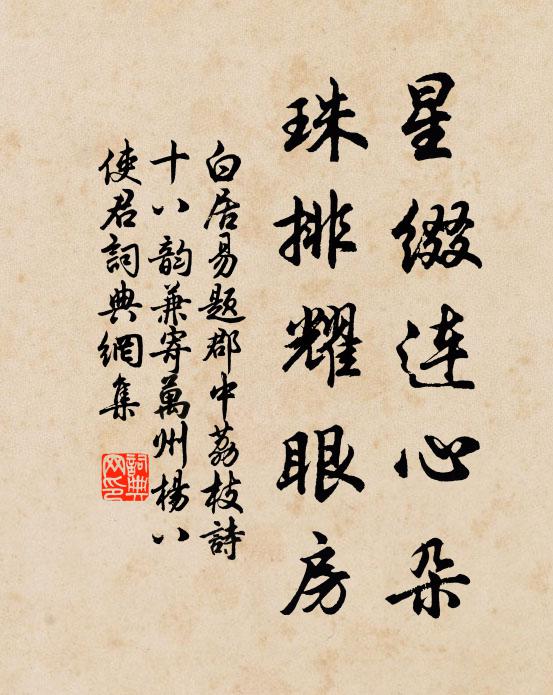 星缀连心朵
珠排耀眼房
白居易題郡中荔枝詩
十八韵兼寄萬州楊八
使君詞典網集
詞典
网印